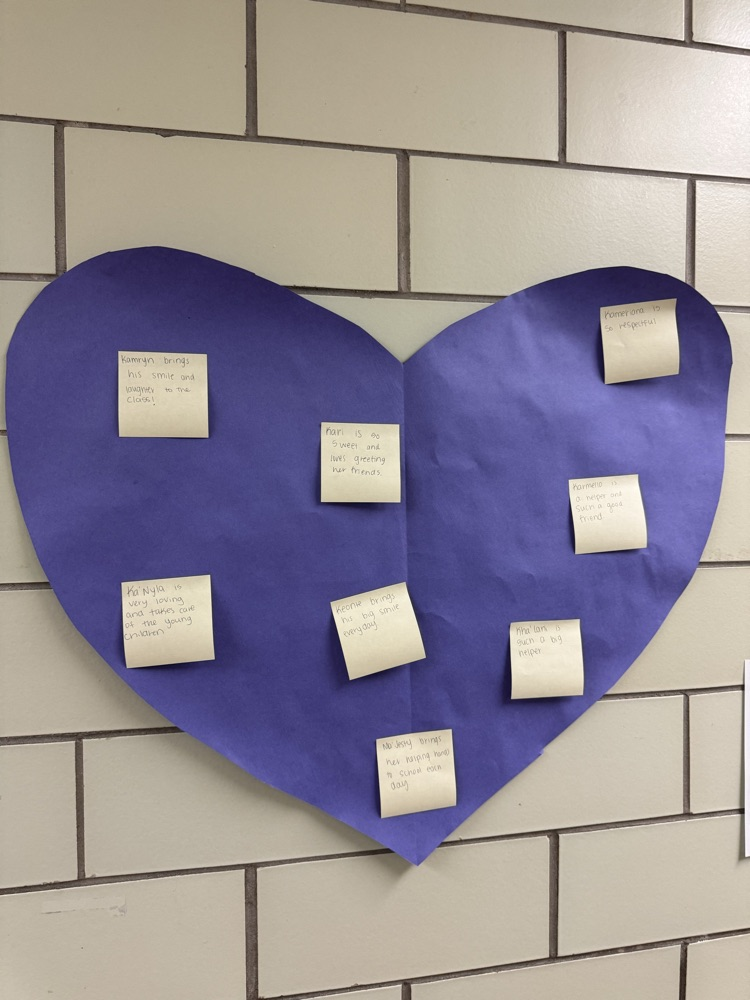 Kamryn brings
his smile and
laughter to the
class!
Kari is so
sweet and
loves greeting
her friends.
Kameriana is
so respectful
Karmello is
a helper and
such a good
friend
Ka'Nyla is
very loving
and takes care
of the young
children
Keonte brings
his big smile
everyday
Kha'Lani is
such a big
helper
Mo'Jesty brings
her helping hands
to school each
day